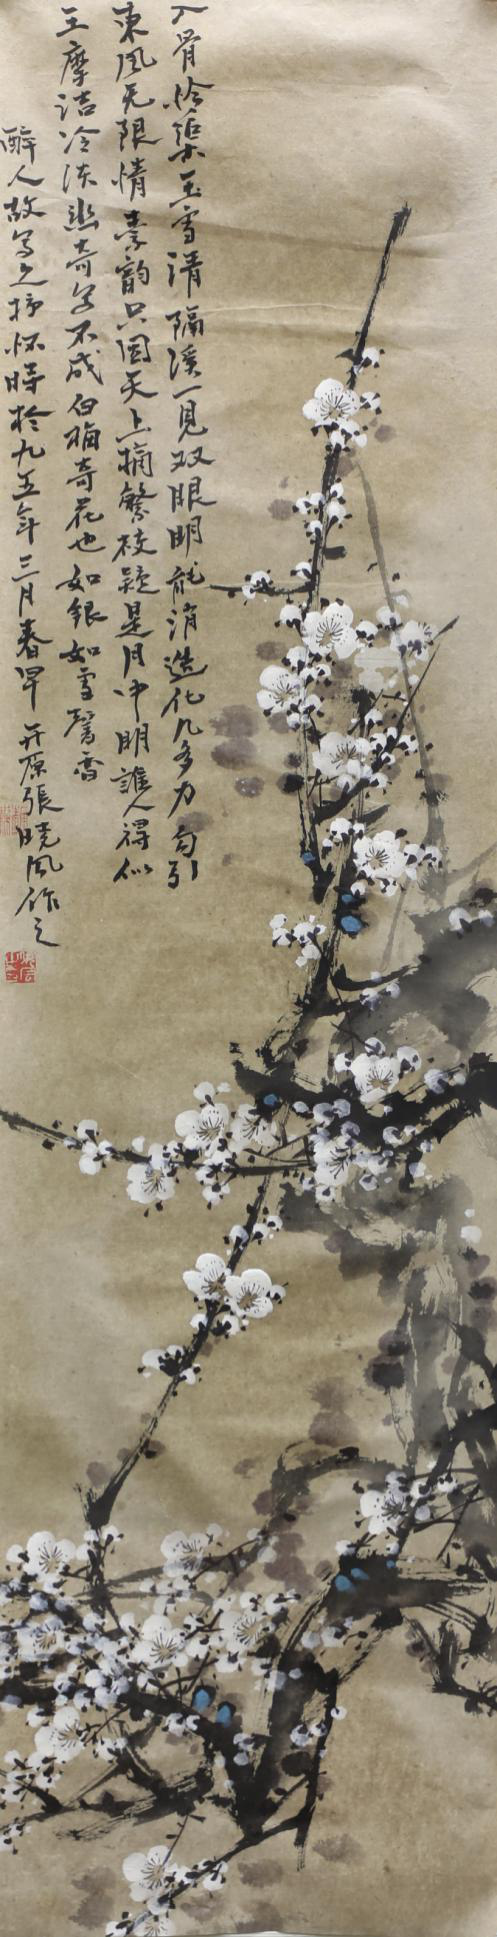 入骨怜渠玉雪清隔溪一見双眼明能消造化几多力勾引
東風无限情素韵只固天上摘繁枝疑是月中明誰人得似
王摩诘冷淡幽奇写不成白梅奇花也如銀如雪馨香
醉人故写之抒怀時於九五年三月春早开原張晓风作之